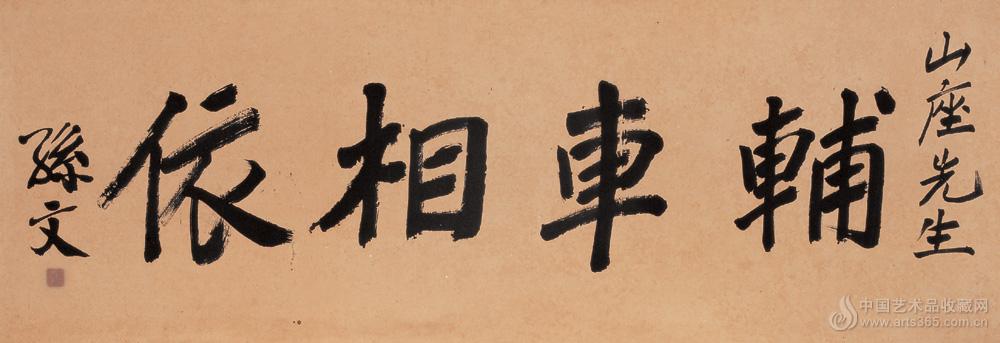 山座先生
輔車相依
孫文
中国艺术品收藏网
www.arts365.com.cn